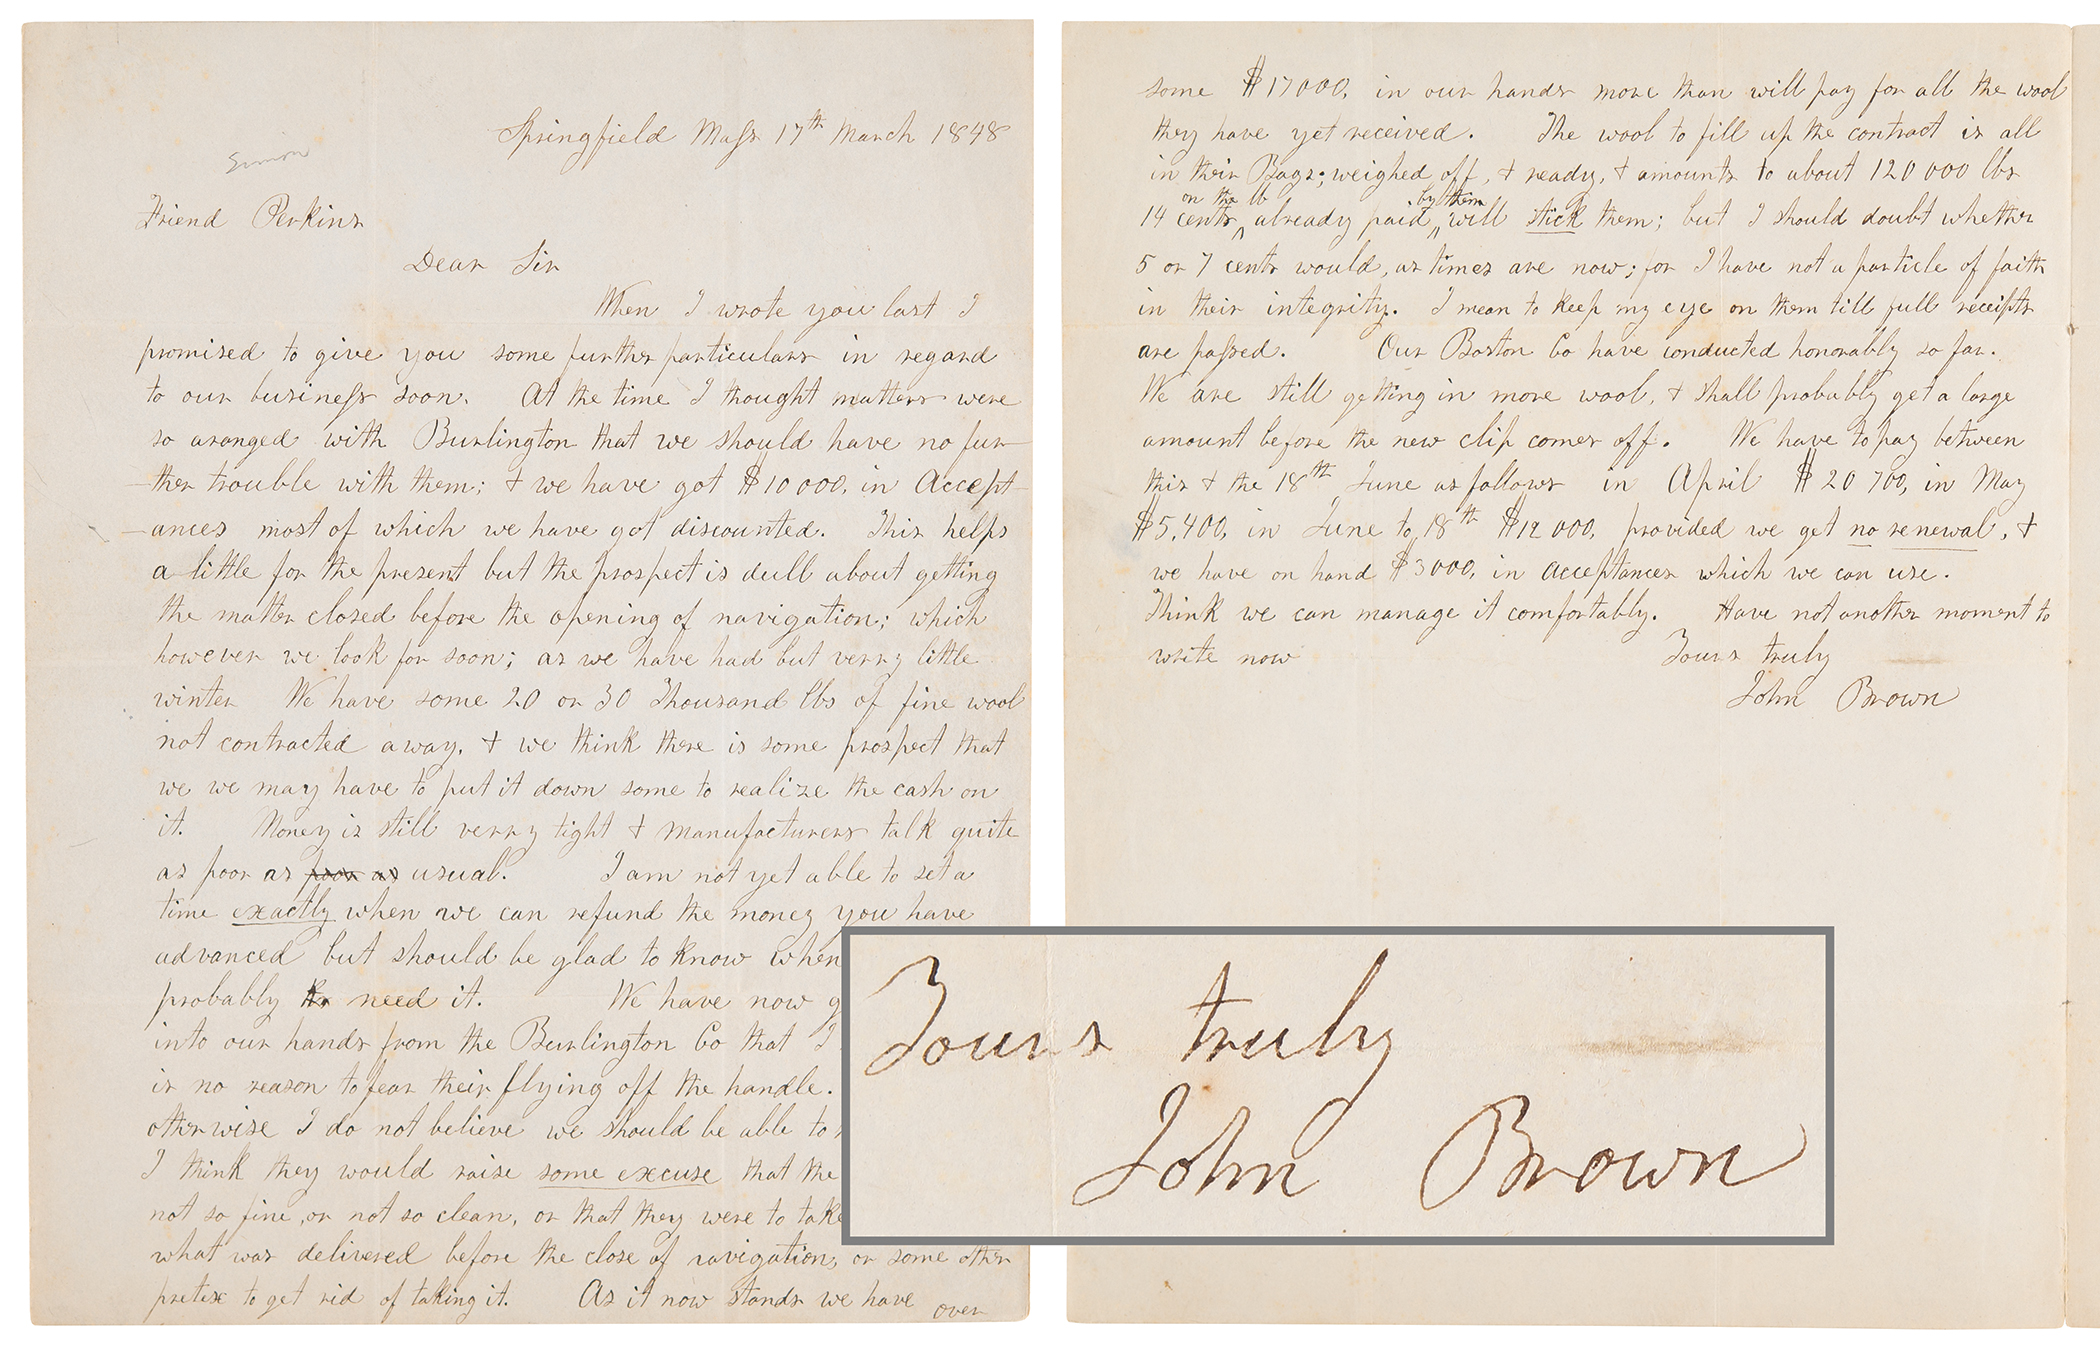 Springfield Mass 17th March 1848
Simon
Friend Perkins
Dear Sir
When I wrote you last I
promised to give you some further particulars in regard
to our business soon. At the time I thought matters were
so aranged with Burlington that we should have no fur-
-ther trouble with them; & we have got $10000, in Accept-
-ances most of which we have got discounted. This helps
a little for the present but the prospect is dull about getting
the matter closed before the opening of navigation; which
however we look for soon; as we have had but verry little
winter We have some 20 or 30 Thousand lbs of fine wool
not contracted away, & we think there is some prospect that
we we may have to put it down some to realize the cash on
it. Money is still verry tight & manufacturers talk quite
as poor as poor as usual. I am not yet able to set a
time exactly when we can refund the money you have
advanced but should be glad to know when
probably need it. We have now
into our hands from the Burlington Co that I
is no reason to fear their flying off the handle.
otherwise I do not believe we should be able to
I think they would raise some excuse that the
not so fine, or not so clean, or that they were to take
what was delivered before the close of navigation, or some other
pretex to get rid of taking it. As it now stands we have
over
some $17000, in our hands more than will pay for all the wool
they have yet received. The wool to fill up the contract is all
in their Bags; weighed off, & ready, & amounts to about 120000 lbs
on the lb by them
14 cents already paid, will stick them; but I should doubt whether
5 or 7 cents would, as times are now; for I have not a particle of faith
in their integrity. I mean to keep my eye on them till full receipts
are passed. Our Boston Co have conducted honorably so far.
We are still getting in more wool, & shall probably get a large
amount before the new clip comes off. We have to pay between
this & the 18th June as follows in April $20700, in May
$5,400, in June to 18th $12000, provided we get no renewal, &
we have on hand $3000, in acceptances which we can use.
Think we can manage it comfortably. Have not another moment to
write now
Yours truly
John Brown
Yours truly
John Brown